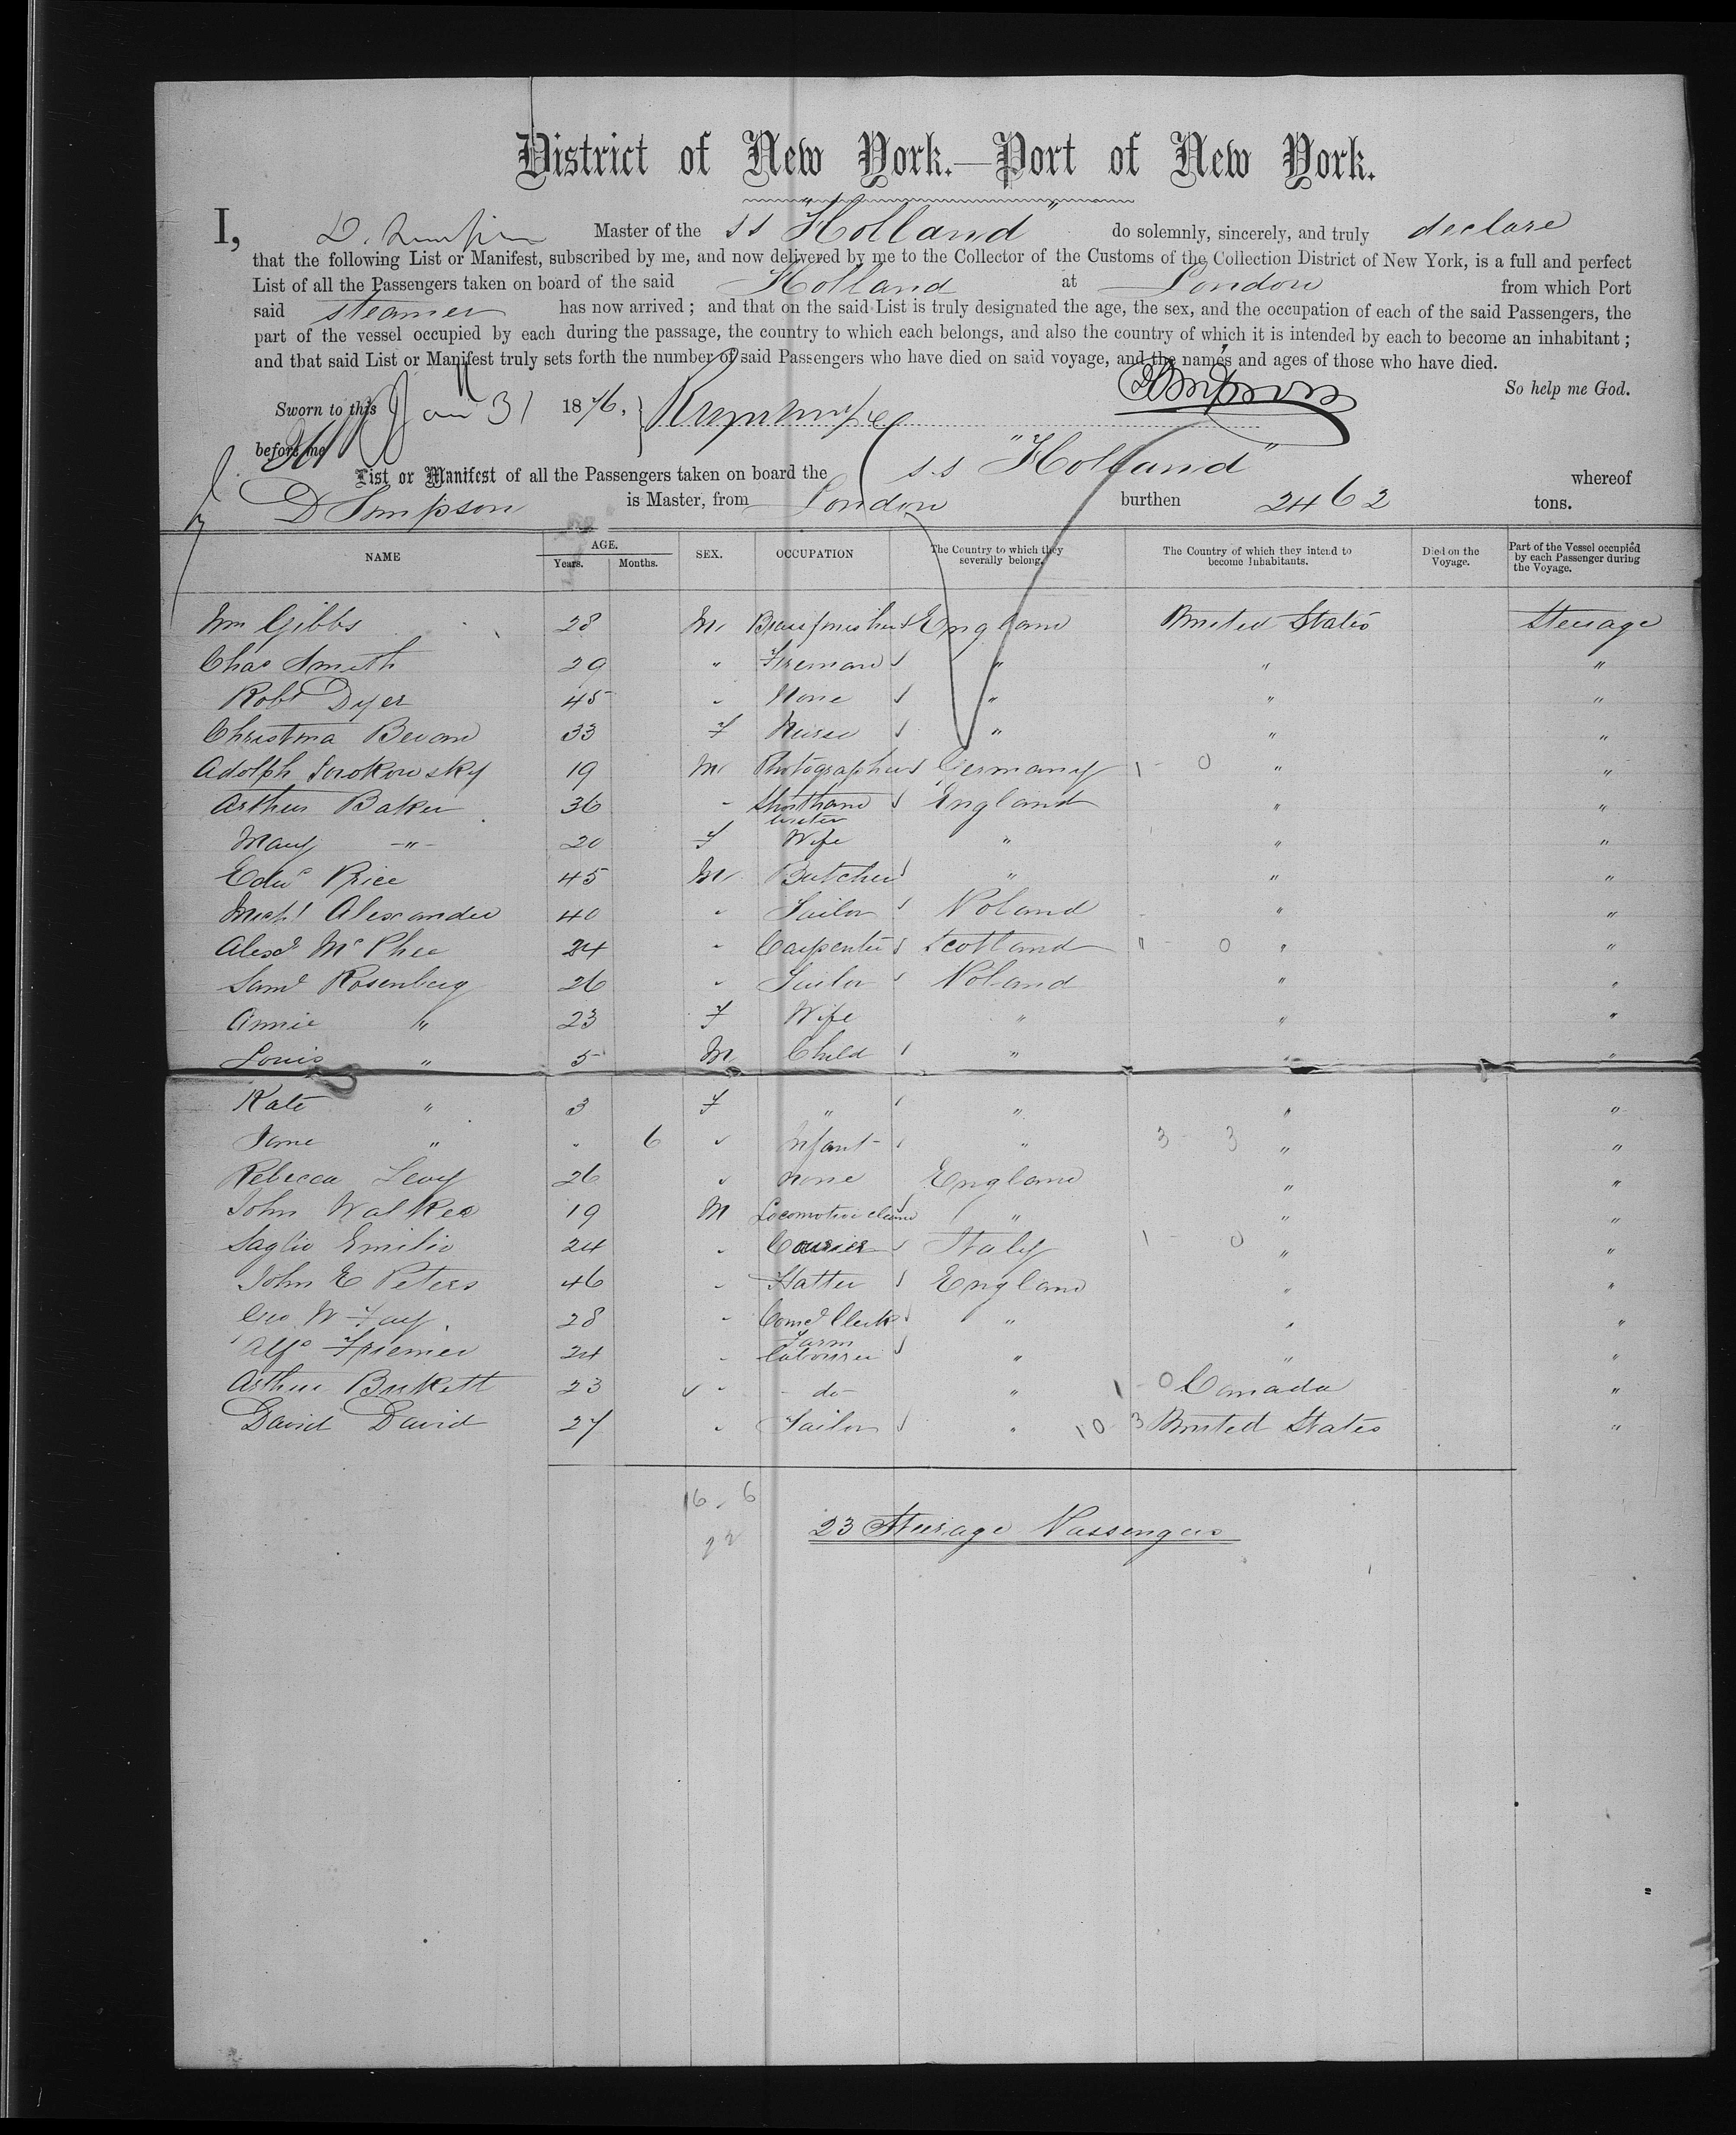 District of New York.—Port of New York.
I, D. Simpson Master of the SS "Holland" do solemnly, sincerely, and truly declare
that the following List or Manifest, subscribed by me, and now delivered by me to the Collector of the Customs of the Collection District of New York, is a full and perfect
List of all the Passengers taken on board of the said Holland at London from which Port
said steamer has now arrived; and that on the said List is truly designated the age, the sex, and the occupation of each of the said Passengers, the
part of the vessel occupied by each during the passage, the country to which each belongs, and also the country of which it is intended by each to become an inhabitant;
and that said List or Manifest truly sets forth the number of said Passengers who have died on said voyage, and the names and ages of those who have died.
So help me God.
Sworn to this Jan 31 1876, DSimpson
before me
List or Manifest of all the Passengers taken on board the S.S "Holland" whereof
D Simpson is Master, from London burthen 2462 tons.
NAME AGE. Years. Months. SEX. OCCUPATION The Country to which they severally belong. The Country of which they intend to become Inhabitants. Died on the Voyage. Part of the Vessel occupied by each Passenger during the Voyage.
Wm Gibbs 28 M Brassfinisher England United States Steerage
Chas Smith 29 " Fireman " " "
Robt Dyer 45 " None " " "
Christina Bevan 33 F Nurse " " "
Adolph Sorokowsky 19 M Photographer Germany 1 - 0 " "
Arthur Baker 36 " Shorthand writer England " "
Mary -"- 20 F Wife " " "
Edwd Rice 45 M Butcher " " "
Michl Alexander 40 " Tailor Poland " "
Alexr McPhee 24 " Carpenter Scotland 1 - 0 " "
Saml Rosenberg 26 " Tailor Poland " "
Annie " 23 F Wife " " "
Louis " 5 M Child " " "
Kate " 3 F " " " "
Jane " " 6 " Infant " 3 - 3 " "
Rebecca Levy 26 " none England " "
John Walker 19 M Locomotive cleaner " " "
Saglio Emilio 24 " Courier Italy 1 - 0 " "
John E Peters 46 " Hatter England " "
Geo W Fay 28 " Comcl Clerk " " "
Alfd Friemer 24 " Farm labourer " " "
Arthur Birkett 23 " - do - " 1 - 0 Canada "
David David 27 " Tailor " 10 3 United States "
16 - 6
22
23 Steerage Passengers